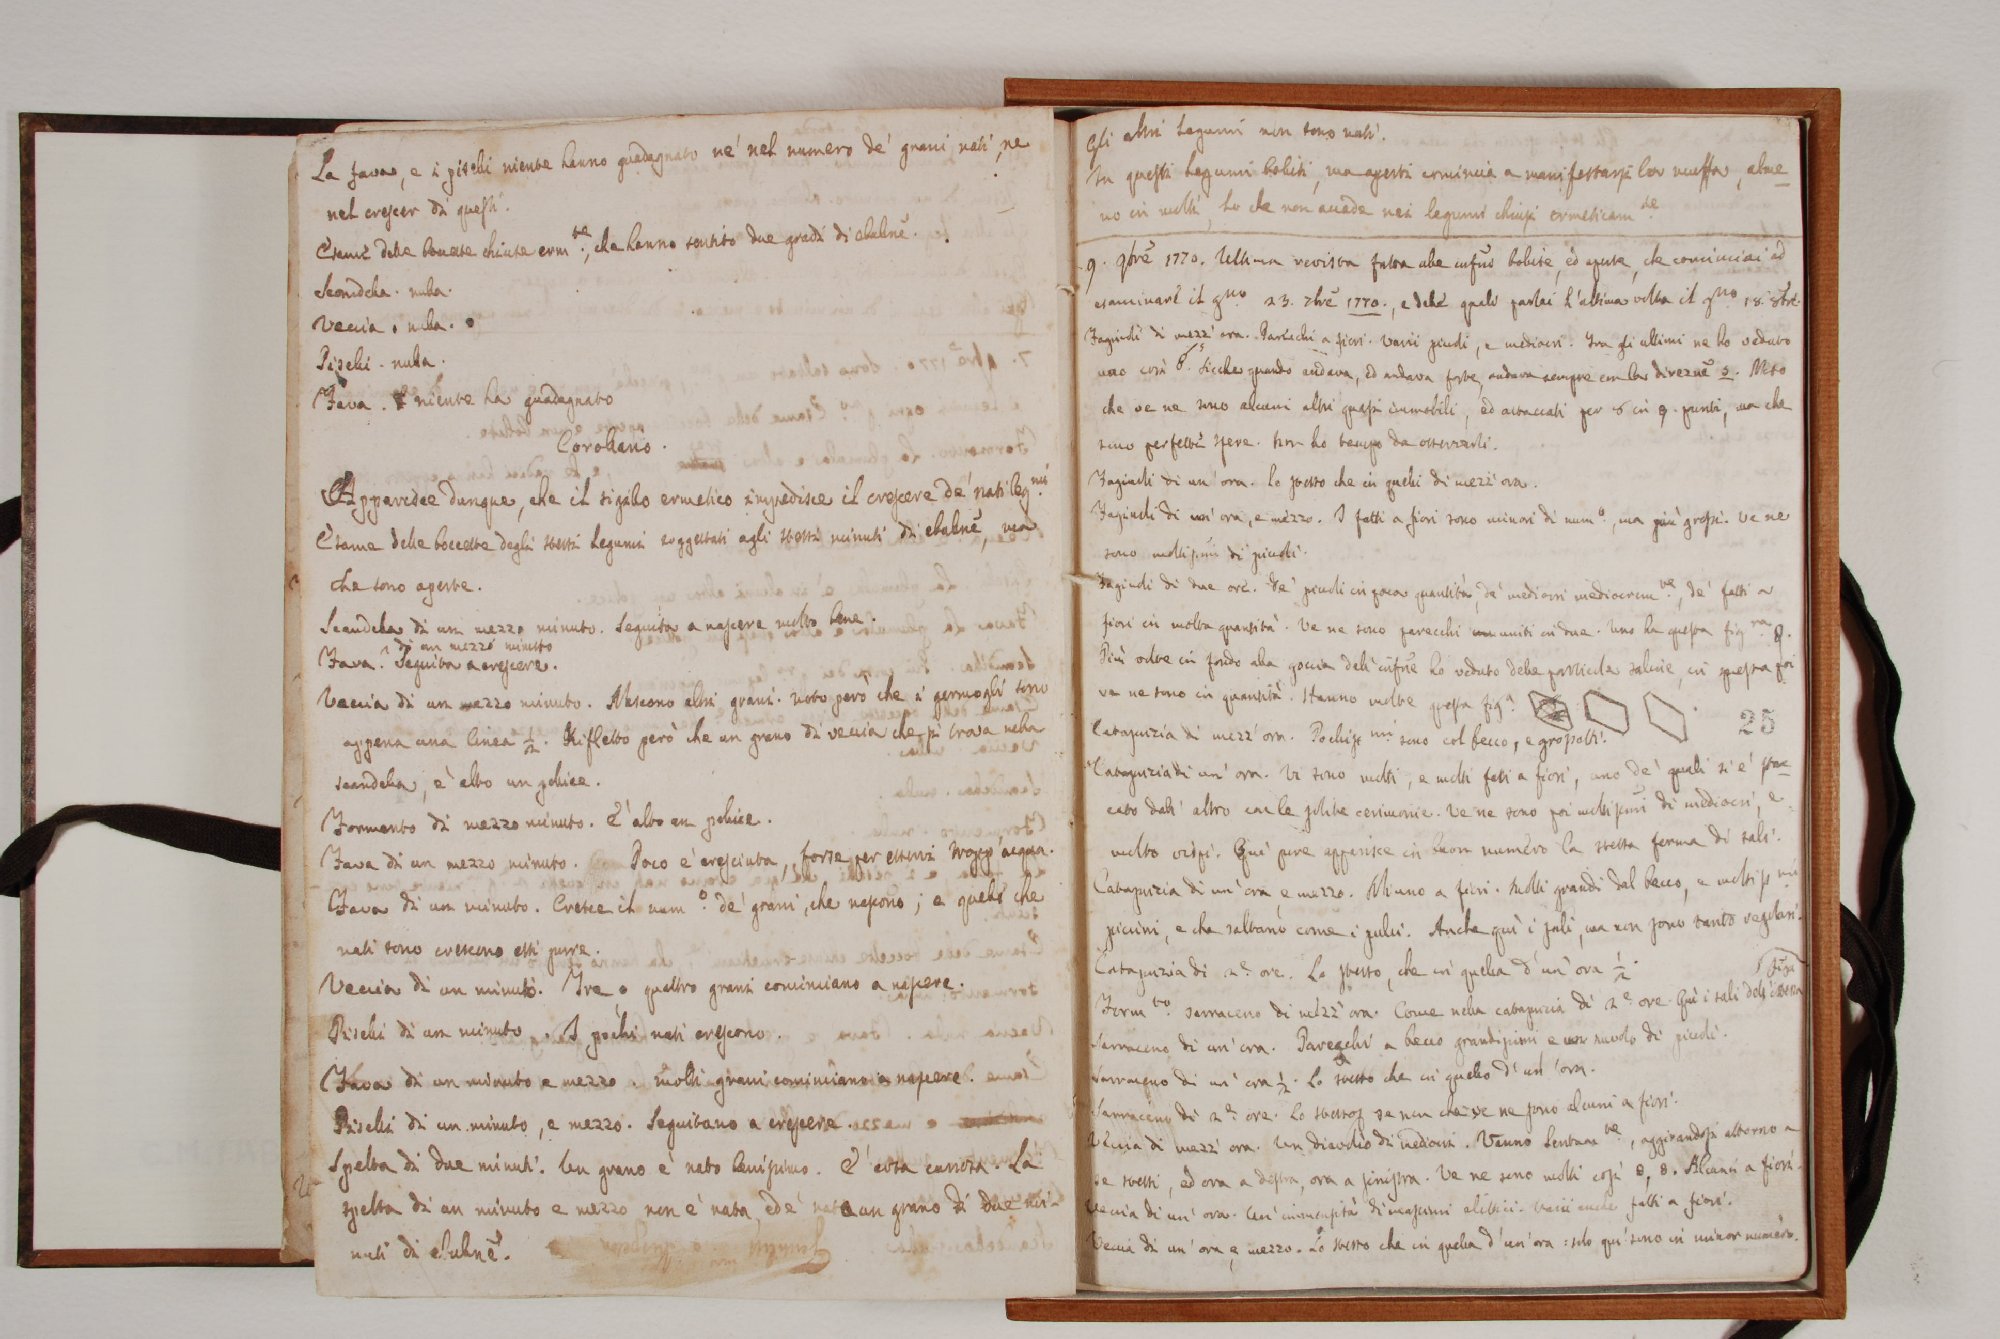 La fava, e i piselli niente hanno guadagnato ne' nel numero de' grani nati, ne
nel crescer di questi.
Esame delle boccette chiuse erm.te, che hanno sentito due gradi di ebulne.
Scandella. nulla.
Veccia. nulla.
Piselli. nulla.
Fava. niente ha guadagnato
Corollario.
Apparisce dunque, che il sigillo ermetico impedisce il crescere de' nati leg.mi
Esame delle boccette degli stessi legumi soggettati agli stessi minuti di ebulne, ma
che sono aperte.
Scandella di un mezzo minuto. Seguita a nascere molto bene.
di un mezzo minuto
Fava. Seguita a crescere.
Veccia di un mezzo minuto. Nascono altri grani. Noto però che i germogli sono
appena una linea 1/2. Rifletto però che un grano di veccia che si trova nella
scandella, è alto un pollice.
Formento di mezzo minuto. E' alto un pollice.
Fava di un mezzo minuto. Poco è cresciuta, forse per esservi tropp'acqua.
Fava di un minuto. Cresce il num.o de' grani, che nascono; e quelli che
nati sono crescono essi pure.
Veccia di un minuto. Tre, o quattro grani cominciano a nascere.
Piselli di un minuto. I pochi nati crescono.
Fava di un minuto e mezzo. Molti grani cominciano a nascere.
Piselli di un minuto, e mezzo. Seguitano a crescere.
Spelta di due minuti. Un grano è nato benissimo. E' cosa curiosa. La
spelta di un minuto e mezzo non è nata, ed è nato un grano di due mi-
nuti di ebulne.
Gli altri legumi non sono nati.
In questi legumi bolliti, ma aperti comincia a manifestarsi la muffa, alme-
no in molti, lo che non accade nei legumi chiusi ermeticam.te
9. 9bre 1770. Ultima rivista fatta alle infusni bollite, ed aperte, che cominciai ad
esaminare il g.no 23. 7bre 1770., e delle quali parlai l'ultima volta il g.no 18. 8bre.
Fagiuoli di mezz'ora. Parecchi a fiori. Varii piccoli, e mediocri. Tra gli ultimi ne ho veduto
uno così 8. Sicche quando andava, ed andava forte, andava sempre con la direzne s. Noto
che ve ne sono alcuni altri quasi immobili, ed attaccati per o in 9. punti, ma che
sono perfette sfere. Non ho tempo da osservarli.
Fagiuoli di un'ora. Lo stesso che in quelli di mezz'ora.
Fagiuoli di un'ora, e mezzo. I fatti a fiori sono minori di num.o, ma più grossi. Ve ne
sono moltissimi di piccoli.
Fagiuoli di due ore. De' piccoli in poca quantità, de' mediocri mediocrem.te, de' fatti a
fiori in molta quantità. Ve ne sono parecchi uniti in due. Uno ha questa fig.ra 8.
Più oltre in fondo alla goccia dell'infusne ho veduto delle particelle saline, in questa poi
ve ne sono in quantità. Hanno molte questa fig.a
25
Catapuzia di mezz'ora. Pochiss.mi sono col becco, e grossotti.
Catapuzia di un'ora. Vi sono molti, e molti fatti a fiori, uno de' quali si è stac-
cato dall'altro con le solite cerimonie. Ve ne sono poi moltissimi di mediocri, e
molto vispi. Quì pure apparisce in buon numero la stessa forma di sali.
Catapuzia di un'ora e mezzo. Niuno a fiori. Molti grandi dal becco, e moltiss.mi
piccini, e che saltano come i pulci. Anche quì i sali, ma non sono tanto regolari.
Catapuzia di 2.e ore. Lo stesso, che in quella d'un'ora 1/2.
Form.to sarraceno di mezz'ora. Come nella catapuzia di 2.e ore. Quì i sali dell'istessa
figu
Sarraceno di un'ora. Parecchi a becco grandissimi e un nuvolo di piccoli.
Sarraceno di un'ora 1/2. Lo stesso che in quello d'un'ora.
Sarraceno di 2.e ore. Lo stesso se non che ve ne sono alcuni a fiori.
Veccia di mezz'ora. Un diavolio di mediocri. Vanno lentam.te, aggirandosi attorno a
se stessi, ed ora a destra, ora a sinistra. Ve ne sono molti così 8, 8. Alcuni a fiori.
Veccia di un'ora. Un'immensità di massimi elittici. Varii anche fatti a fiori.
Veccia di un'ora, e mezzo. Lo stesso che in quella d'un'ora: solo qui sono in minor numero.